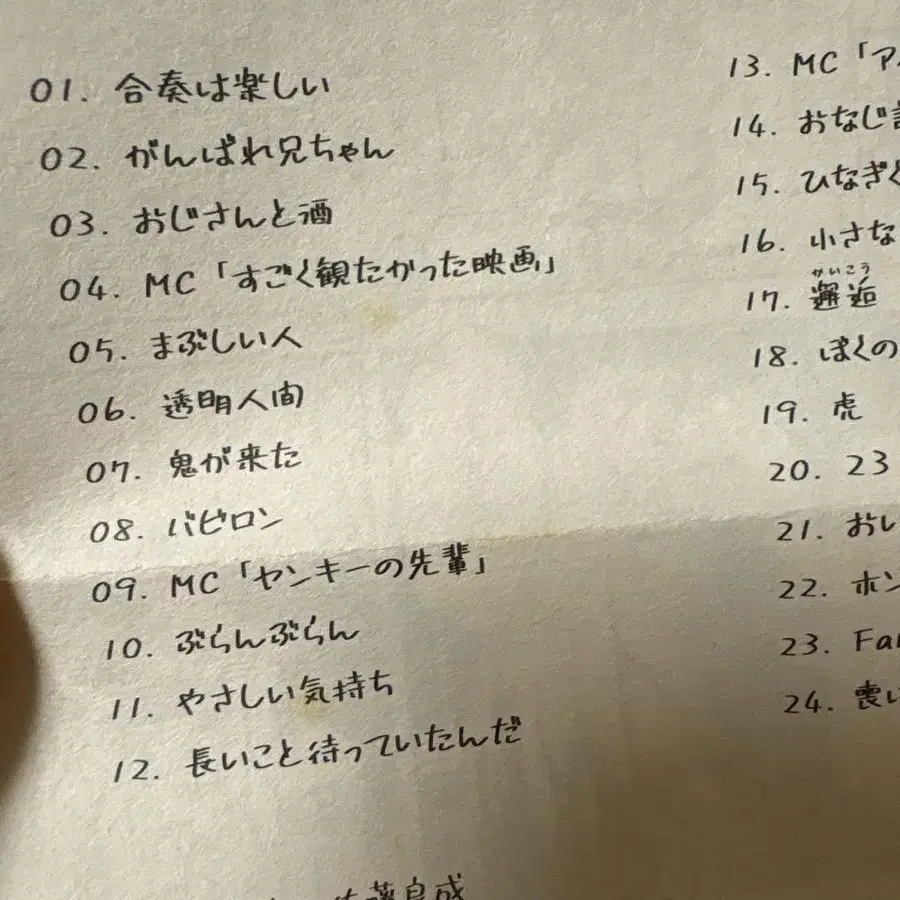 01. 合奏は楽しい
02. がんばれ兄ちゃん
03. おじさんと酒
04. MC「すごく観たかった映画」
05. まぶしい人
06. 透明人間
07. 鬼が来た
08. バビロン
09. MC「ヤンキーの先輩」
10. ぶらんぶらん
11. やさしい気持ち
12. 長いこと待っていたんだ
13. MC「ア
14. おなじ
15. ひなぎく
16. 小さな
かいこう
17. 邂逅
18. ぼくの
19. 虎
20. 23
21. おい
22. ホン
23. Fa
24. 喪
良成